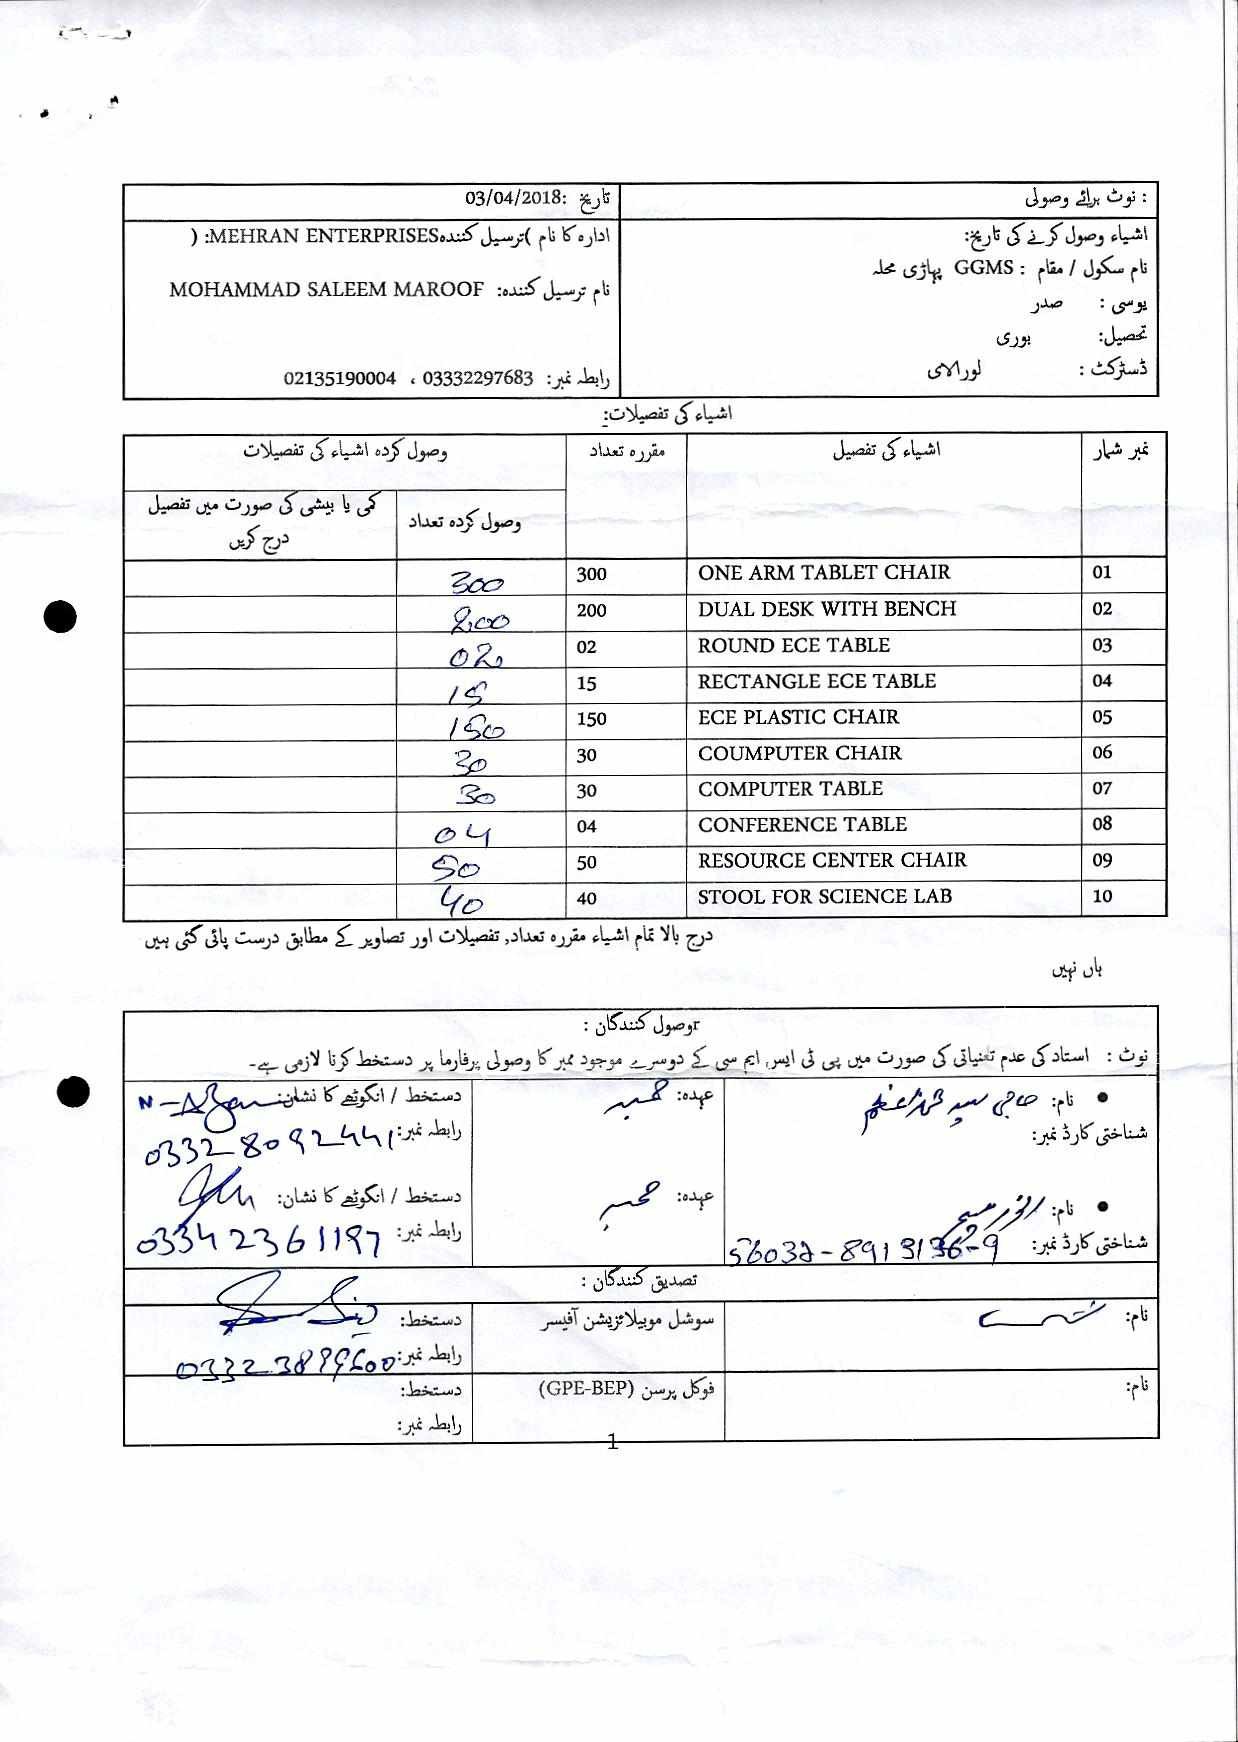 نوٹ برائے وصولی :
تاریخ :03/04/2018
اشیاء وصول کرنے کی تاریخ:
نام سکول / مقام : GGMS پہاڑی محلہ
یوسی : صدر
تحصیل: بوری
ڈسٹرکٹ : لورالائی
ادارہ کا نام )ترسیل کنندہMEHRAN ENTERPRISES: (
نام ترسیل کنندہ: MOHAMMAD SALEEM MAROOF
رابطہ نمبر: 03332297683 ، 02135190004
اشیاء کی تفصیلات:
نمبر شمار اشیاء کی تفصیل مقررہ تعداد وصول کردہ اشیاء کی تفصیلات
وصول کردہ تعداد کمی یا بیشی کی صورت میں تفصیل
درج کریں
01 ONE ARM TABLET CHAIR 300 300
02 DUAL DESK WITH BENCH 200 200
03 ROUND ECE TABLE 02 02
04 RECTANGLE ECE TABLE 15 15
05 ECE PLASTIC CHAIR 150 150
06 COUMPUTER CHAIR 30 30
07 COMPUTER TABLE 30 30
08 CONFERENCE TABLE 04 04
09 RESOURCE CENTER CHAIR 50 50
10 STOOL FOR SCIENCE LAB 40 40
درج بالا تمام اشیاء مقررہ تعداد, تفصیلات اور تصاویر کے مطابق درست پائی گئی ہیں
ہاں نہیں
rوصول کنندگان :
نوٹ : استاد کی عدم تعنیاتی کی صورت میں پی ٹی ایس, ایم سی کے دوسرے موجود ممبر کا وصولی پرفارما پر دستخط کرنا لازمی ہے-
نام: حاجی سید محمد اعظم عہدہ: ممبر دستخط / انگوٹھے کا نشان:
شناختی کارڈ نمبر: رابطہ نمبر:
نام: انور مسیح عہدہ: ممبر دستخط / انگوٹھے کا نشان:
شناختی کارڈ نمبر: 56032-8913136-9 رابطہ نمبر: 03342361197
تصدیق کنندگان :
نام: سوشل موبیلائزیشن آفیسر دستخط:
رابطہ نمبر:
نام: فوکل پرسن (GPE-BEP) دستخط:
رابطہ نمبر:
1